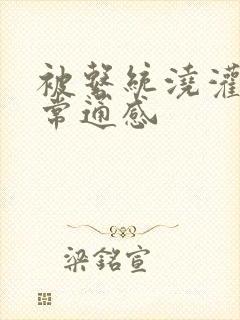 被繫統澆灌
常通感
梁銘宣